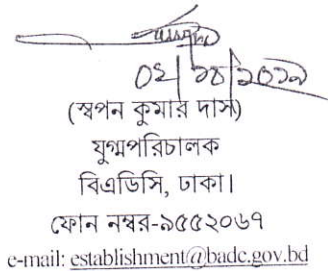 (স্বপন কুমার দাস)
যুগ্মপরিচালক
বিএডিসি, ঢাকা।
ফোন নম্বর-৯৫৫২০৬৭
e-mail: establishment@badc.gov.bd